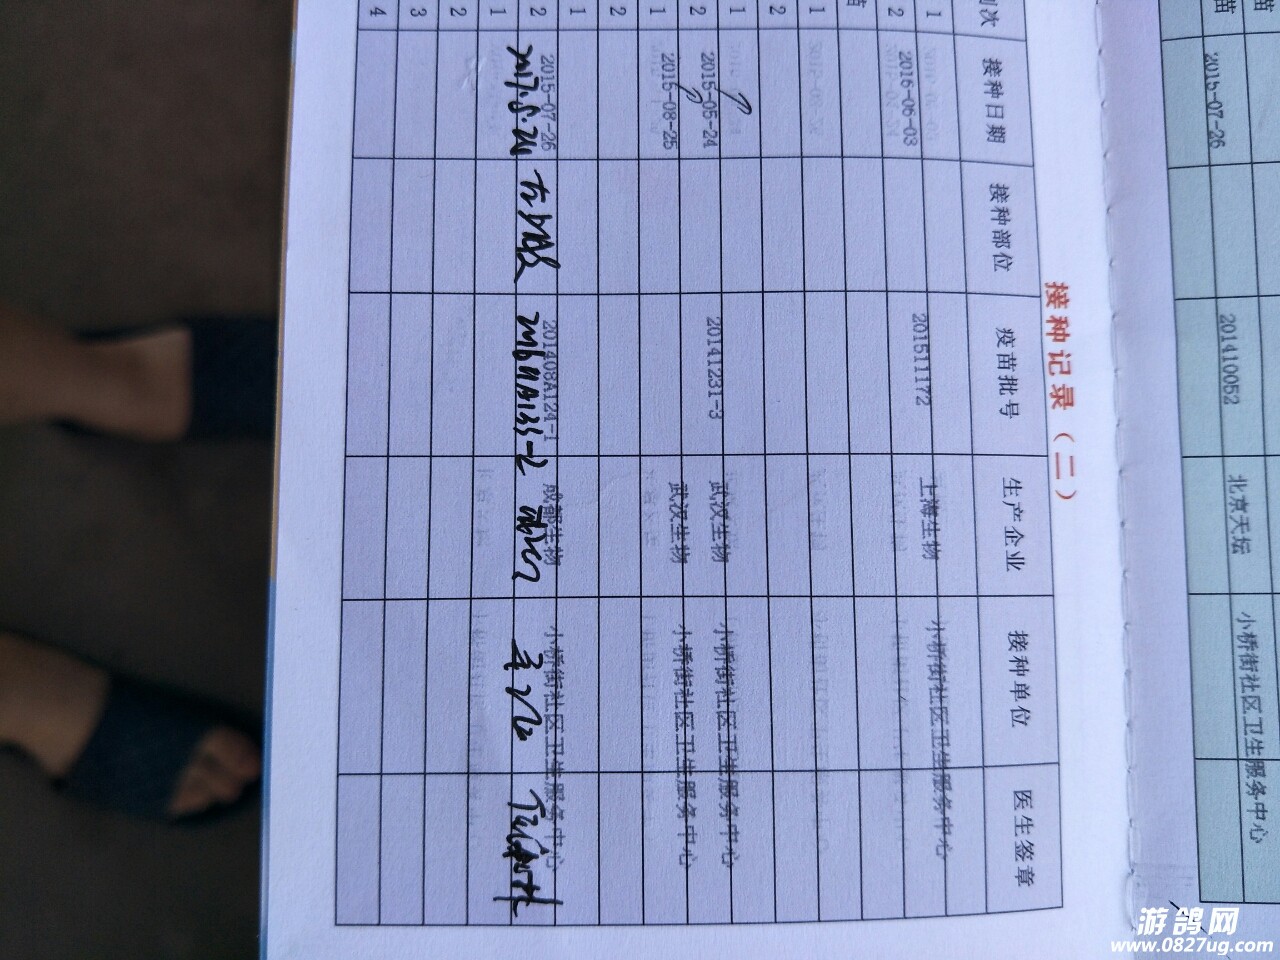 苗
苗 2015-07-26 201410052 北京天坛 小桥街社区卫生服务中心
接种记录（二）
剂次 接种日期 接种部位 疫苗批号 生产企业 接种单位 医生签章
1 201511172 上海生物 小桥街社区卫生服务中心
2 2016-06-03
苗
1
2
1 20141231-3 武汉生物 小桥街社区卫生服务中心
2 2015-05-24
1 2015-08-25 武汉生物 小桥街社区卫生服务中心
2
1
2 2015-07-26 201408A124-1 成都生物 小桥街社区卫生服务中心
2017.5.24
1
2
3
4
游鸽网
www.0827ug.com